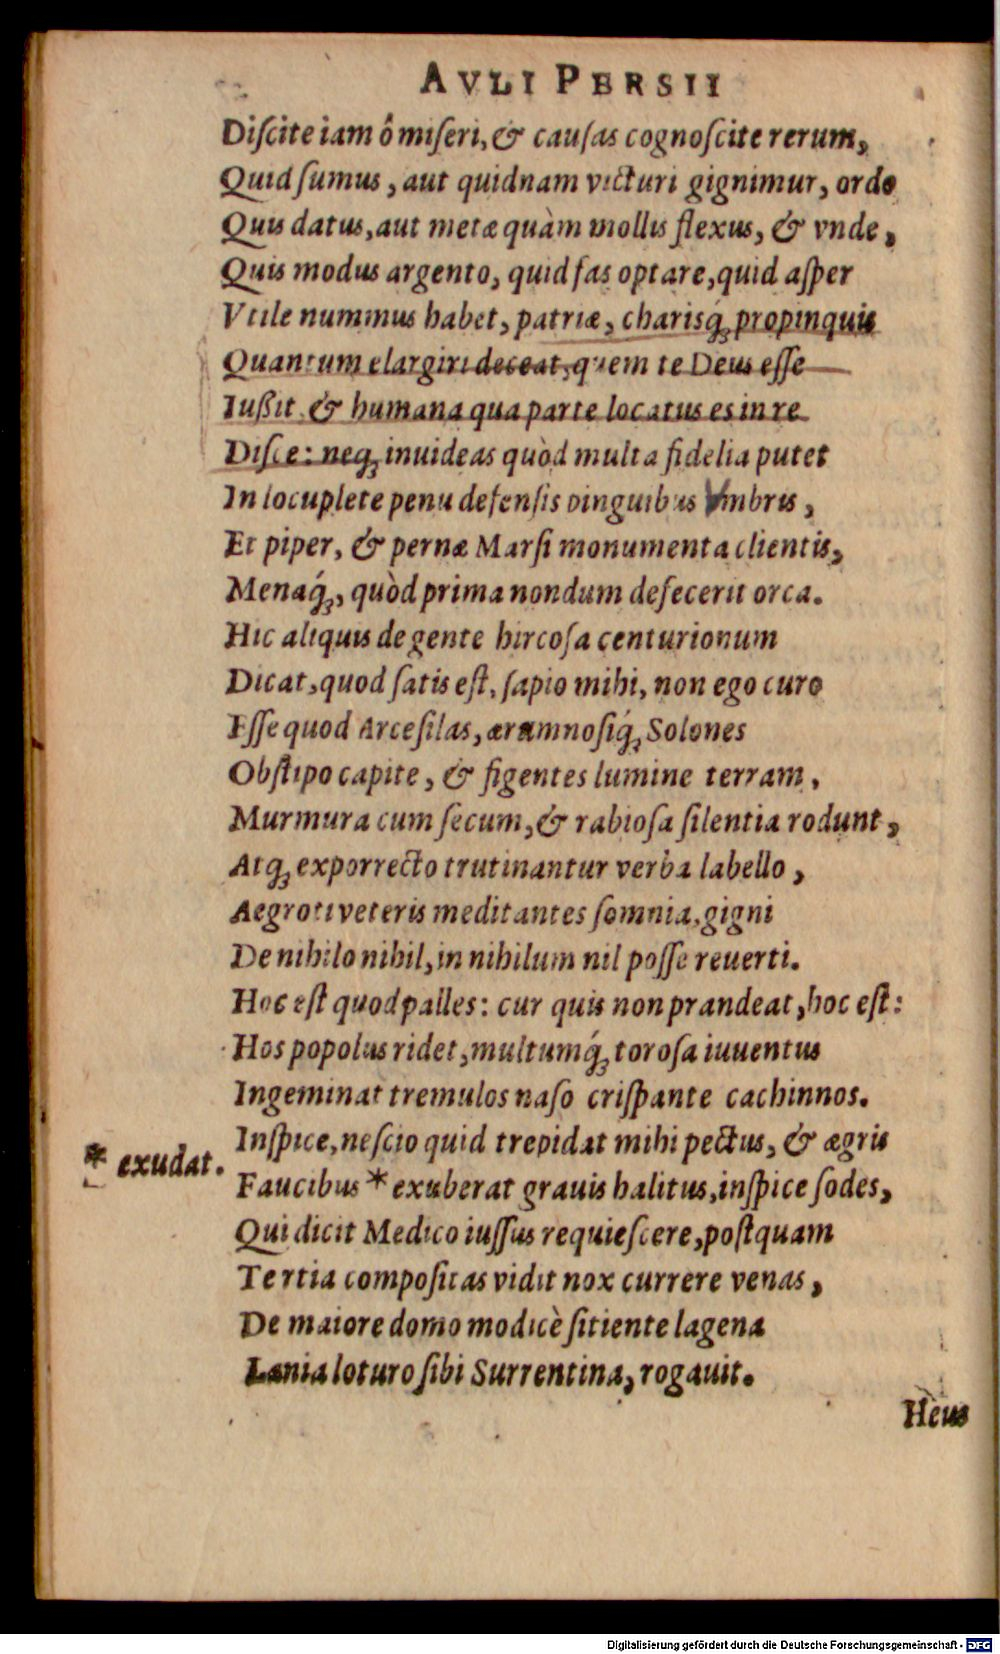 AVLI PERSII
Diſcite iam ô miſeri, & cauſas cognoſcite rerum,
Quid ſumus, aut quidnam victuri gignimur, ordo
Quis datus, aut metæ quàm mollis flexus, & vnde,
Quis modus argento, quid fas optare, quid aſper
Vtile nummus habet, patriæ, charisq́; propinquis
Quantum elargiri deceat, quem te Deus eſſe
Iußit & humana qua parte locatus es in re
Diſce: neq; inuideas quòd multa fidelia putet
In locuplete penu defenſis pinguibus Vmbris,
Et piper, & pernæ Marſi monumenta clientis,
Menaq́;, quòd prima nondum defecerit orca.
Hic aliquis de gente hircoſa centurionum
Dicat, quod ſatis eſt, ſapio mihi, non ego curo
Eſſe quod Arceſilas, ærumnoſiq́; Solones
Obſtipo capite, & figentes lumine terram,
Murmura cum ſecum, & rabioſa ſilentia rodunt,
Atq; exporrecto trutinantur verba labello,
Aegroti veteris meditantes ſomnia, gigni
De nihilo nihil, in nihilum nil poſſe reuerti.
Hoc eſt quod palles: cur quis non prandeat, hoc eſt:
Hos populus ridet, multumq́; toroſa iuuentus
Ingeminat tremulos naſo criſpante cachinnos.
Inſpice, neſcio quid trepidat mihi pectus, & ægris
* exudat.
Faucibus * exuberat grauis halitus, inſpice ſodes,
Qui dicit Medico iuſſus requieſcere, poſtquam
Tertia compoſitas vidit nox currere venas,
De maiore domo modicè ſitiente lagena
Lenia loturo ſibi Surrentina, rogauit.
Heus
Digitalisierung gefördert durch die Deutsche Forschungsgemeinschaft - DFG